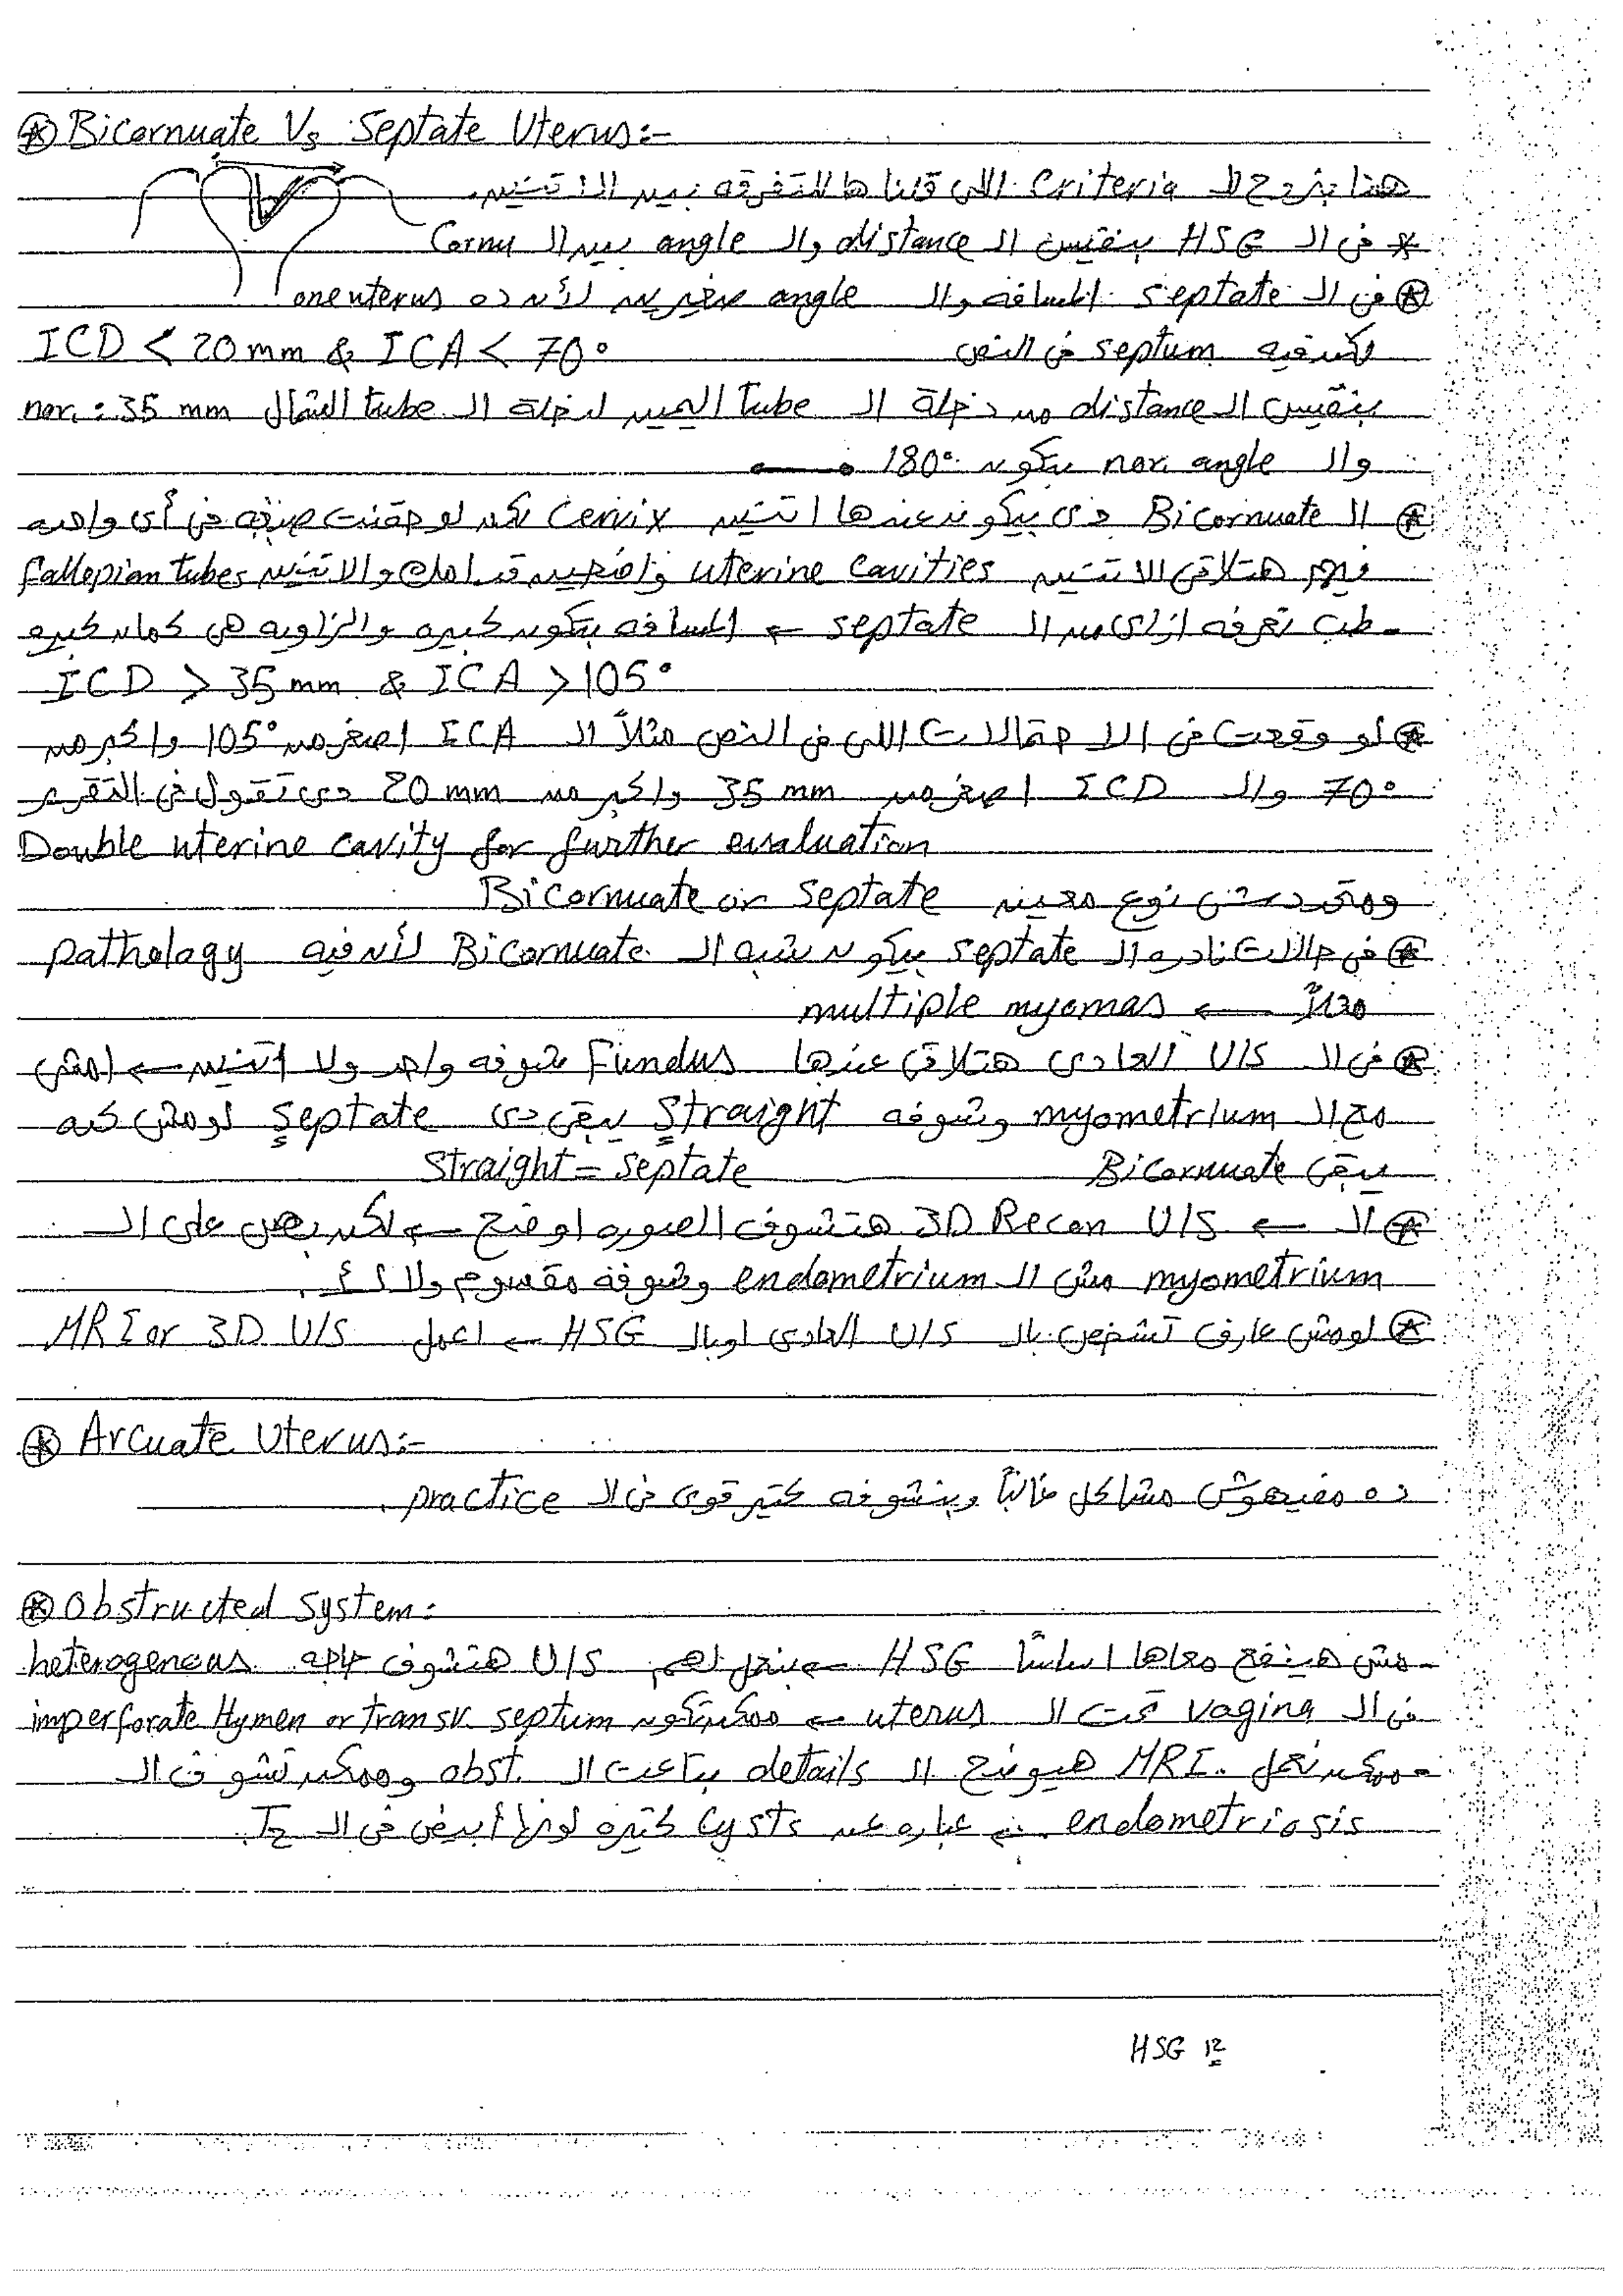 ⊛ Bicornuate Vs Septate Uterus:-
هنا بنرجع لل Criteria اللى قلناها للتفرقه بين الاتنين.
* فى ال HSG بنقيس ال distance وال angle بين ال Cornu
⊛ فى ال septate المسافه وال angle صغيرين لأن ده one uterus
لكن فيه septum فى النص ICD < 20 mm & ICA < 70°
بنقيس ال distance من دخلة ال tube اليمين لدخلة ال tube الشمال nor. : 35 mm
وال nor. angle بيكون 180°
⊛ ال Bicornuate دى بيكون عندها اتنين Cervix لكن لو حقنت صبغه فى أى واحده
فيهم هتلاقى الاتنين uterine cavities واضحين قدامك والاتنين fallopian tubes
- طب تعرفه ازاى من ال septate ← المسافه بتكون كبيره والزاويه هى كمان كبيره
ICD > 35 mm & ICA > 105°
⊛ لو وقعت فى الاحتمالات اللى فى النص مثلاً ال ICA اصغر من 105° واكبر من
70° وال ICD اصغر من 35 mm واكبر من 20 mm دى تقول فى التقرير
Double uterine cavity for further evaluation
نوع معين Bicornuate or Septate
⊛ فى حالات نادره ال septate بيكون شبه ال Bicornuate لأن فيه pathology
مثلاً ← multiple myomas
⊛ فى ال U/S العادى هتلاقى عندها Fundus شوفه واحد ولا اتنين ← امشى
مع ال myometrium وشوفه Straight يبقى دى Septate لو مش كده
يبقى Bicornuate Straight = Septate
⊛ ال ← 3D Recon U/S هتشوف الصوره اوضح ← لكن بص على ال
myometrium مش ال endometrium وشوفه مقسوم ولا لأ.
⊛ لو مش عارف تشخص بال U/S العادى او بال HSG ← اعمل MRI or 3D U/S
⊛ Arcuate Uterus:-
ده مفيهوش مشاكل غالباً وبنشوفه كتير قوى فى ال practice.
⊛ Obstructed System:
- مش هينفع معاها اساساً HSG ← بنعمل لهم U/S هتشوف حاجه heterogenous
فى ال vagina تحت ال uterus ← ممكن تكون imperforate Hymen or transv. septum
- ممكن نعمل MRI هيوضح ال details بتاعت ال obst. وممكن تشوف ال
endometriosis ← عباره عن Cysts كتيره لونها أبيض فى ال T₂.
HSG 12